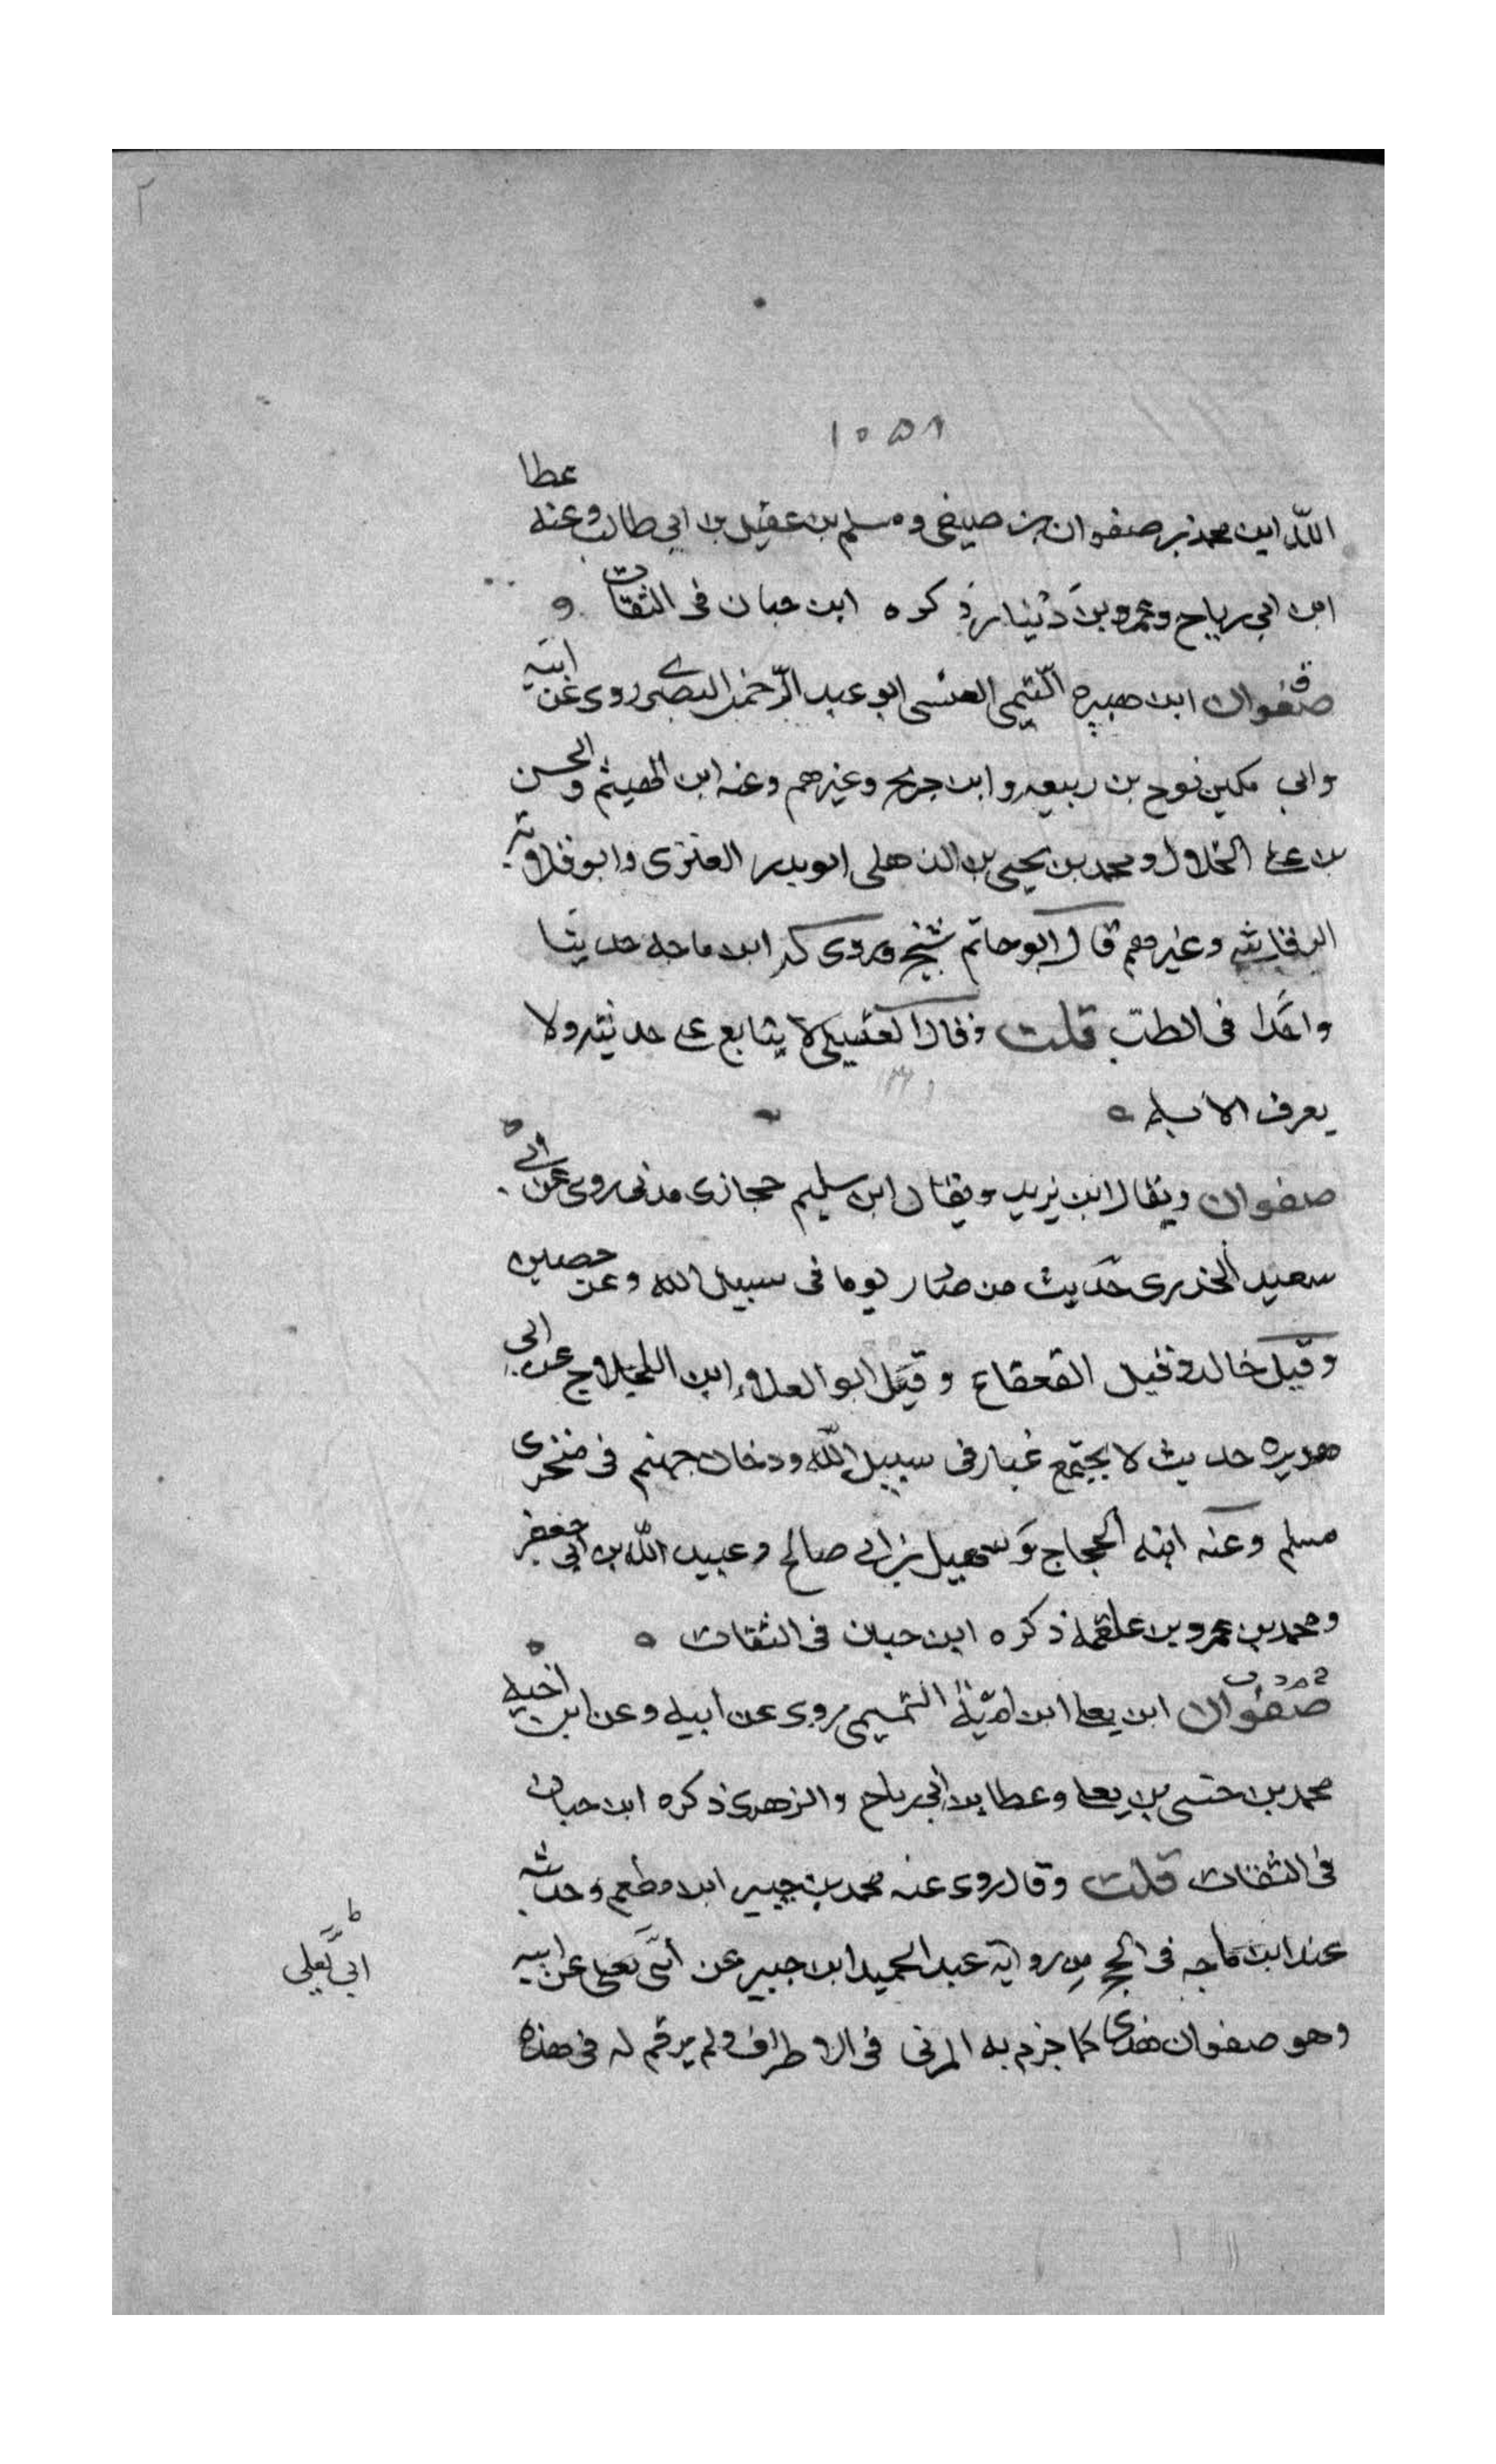 ٢
١٠٥٨
الله ابن محمد بن صفوان بن صيفى ومسلم بن عقيل بن ابي طالب وعنه عطا
ابن ابي رباح وعمرو بن دينار ذكره ابن حبان فى الثقات و
صفوان ابن هبيره التيمى العيشى ابو عبد الرحمن البصرى روى عن ابيه
وابي مكين نوح بن ربيعه وابن جريح وغيرهم وعنه ابن الهيثم والحسن
بن على الخلال ومحمد بن يحيى بن الذهلى ابو بدر العنزى وابو قلابة
الرقاشى وغيرهم قال ابو حاتم شيخ وروى له ابن ماجه حديثا
واحدا فى الطب قلت وقال العقيلى لا يتابع على حديثه ولا
يعرف الا به
صفوان ويقال ابن يزيد ويقال ابن سليم حجازى مدنى روى عن ابي
سعيد الخدرى حديث من صام يوما فى سبيل الله وعن حصين
وقيل خالد وقيل القعقاع وقيل ابو العلاء ابن اللجلاج عن ابي
هريره حديث لا يجتمع غبار فى سبيل الله ودخان جهنم فى منخرى
مسلم وعنه ابنه الحجاج وسهيل بن ابي صالح وعبيد الله بن ابي جعفر
ومحمد بن عمرو بن علقمة ذكره ابن حبان فى الثقات
صفوان ابن يعلى ابن امية التميمى روى عن ابيه وعن ابن اخيه
محمد بن حيى بن يعلى وعطا بن ابي رباح والزهرى ذكره ابن حبان
فى الثقات قلت وقال روى عنه محمد بن جبير ابن مطعم وحديثه
عند ابن ماجه فى الحج من رواية عبد الحميد ابن جبير عن ابى يعلى عن ابيه
ابي يعلي
وهو صفوان هذا كما جزم به المزنى فى الاطراف ولم يرقم له فى هذه